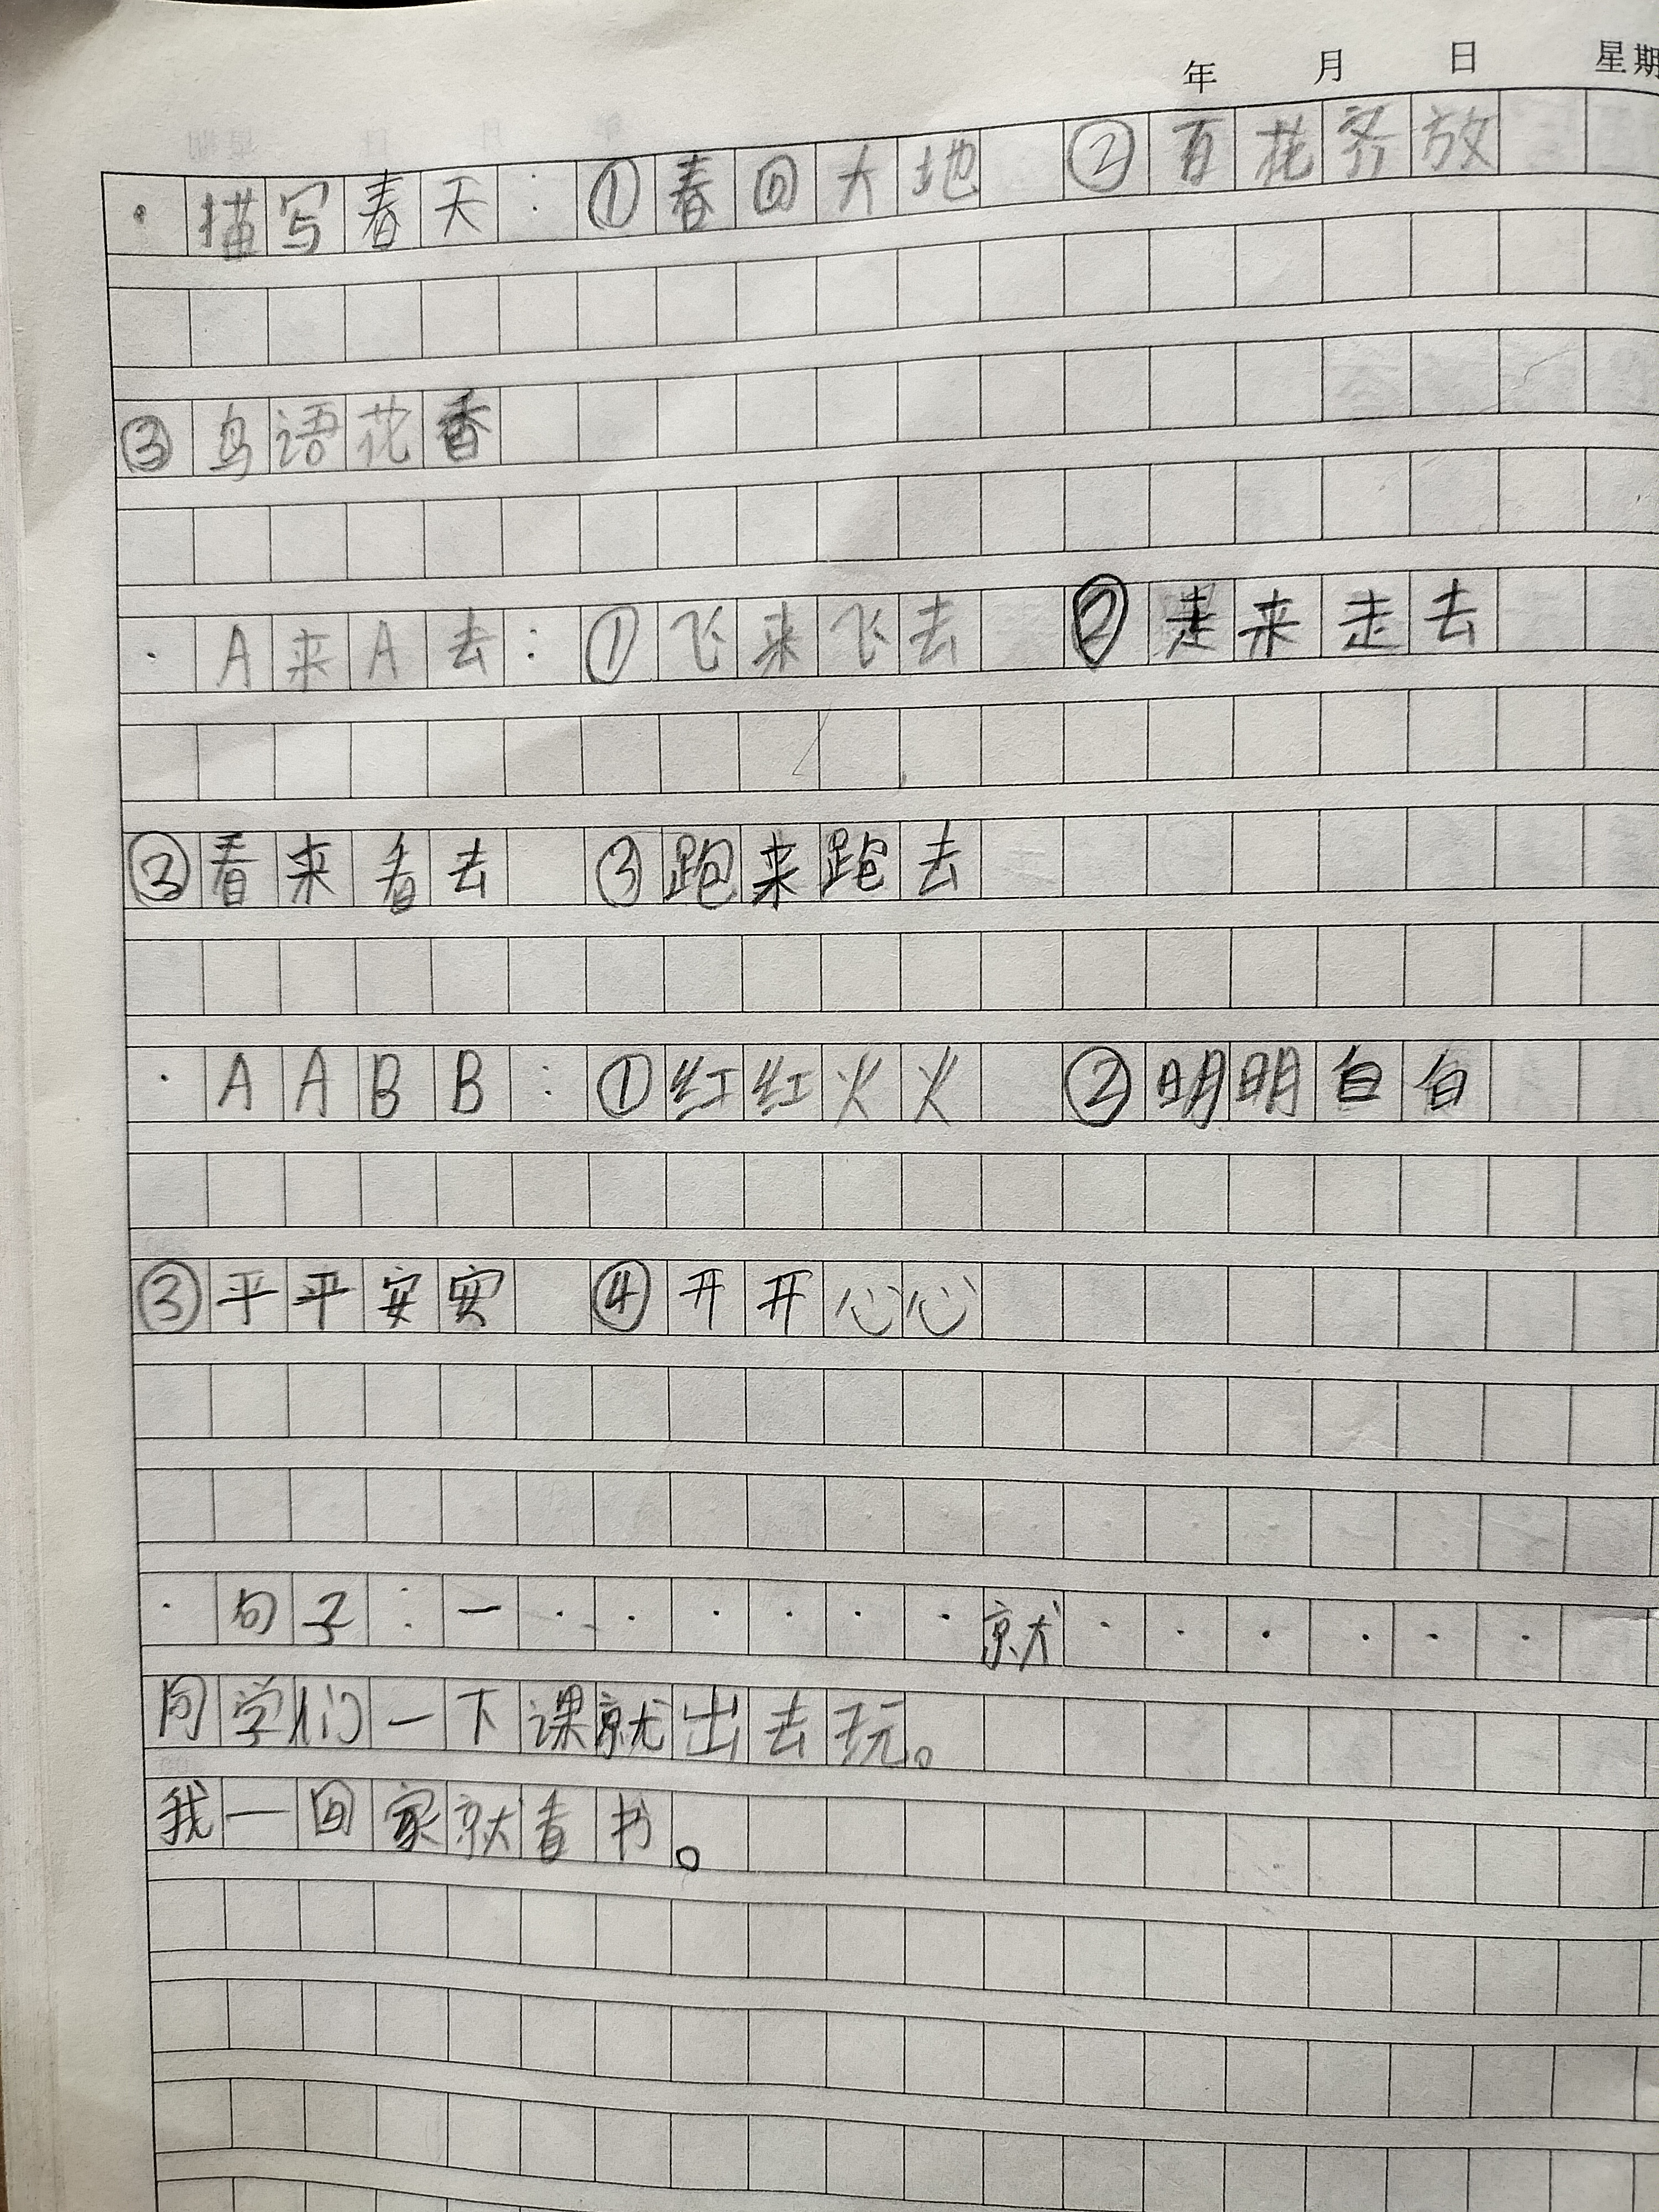 年 月 日 星期
· 描写春天：①春回大地 ②百花齐放
③鸟语花香
· A来A去：①飞来飞去 ②走来走去
③看来看去 ③跑来跑去
· AABB：①红红火火 ②明明白白
③平平安安 ④开开心心
· 句子：一·······就······
同学们一下课就出去玩。
我一回家就看书。